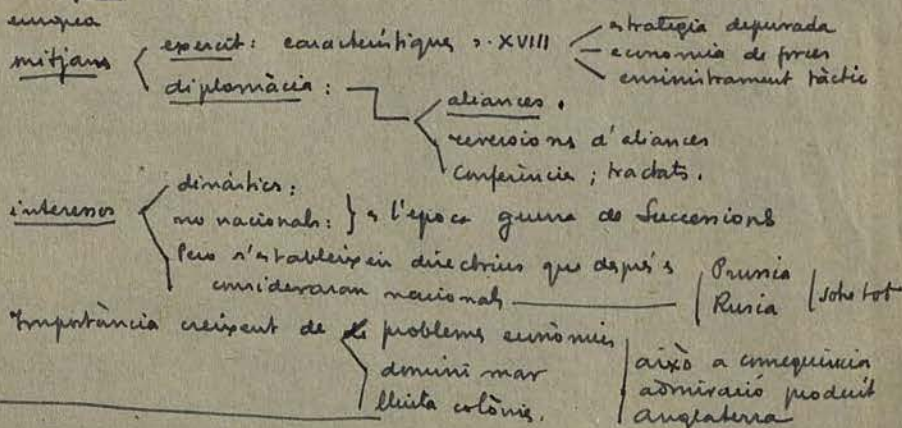 europea
mitjans
exercit: característiques s. XVIII
estrategia depurada
economia de forces
ensinistrament tàctic
diplomàcia:
aliances.
reversions d'aliances
Conferència; tractats.
interessos
dinàstics:
no nacionals: } es l'epoca guerra de Successions
Pero s'estableixen directrius que després
consideraran nacionals
Prussia
Rusia
sobre tot
Importància creixent de
problemes econòmics
domini mar
lluita colònies.
això a conseqüència
admiració produit
Anglaterra